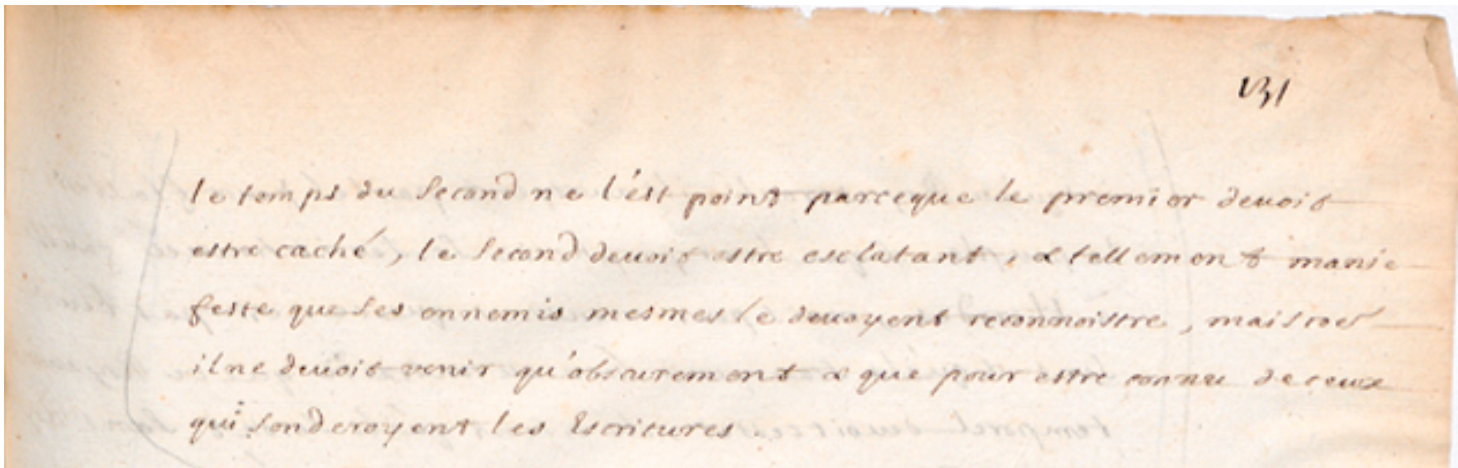 131
le temps du second ne l'est point parceque le premier devoit
estre caché, le second devoit estre esclatant, & tellement manie
feste que ses ennemis mesmes le devoyent reconnoistre, mais
il ne devoit venir qu'obscurement & que pour estre connu de ceux
qui sonderoyent les Escritures